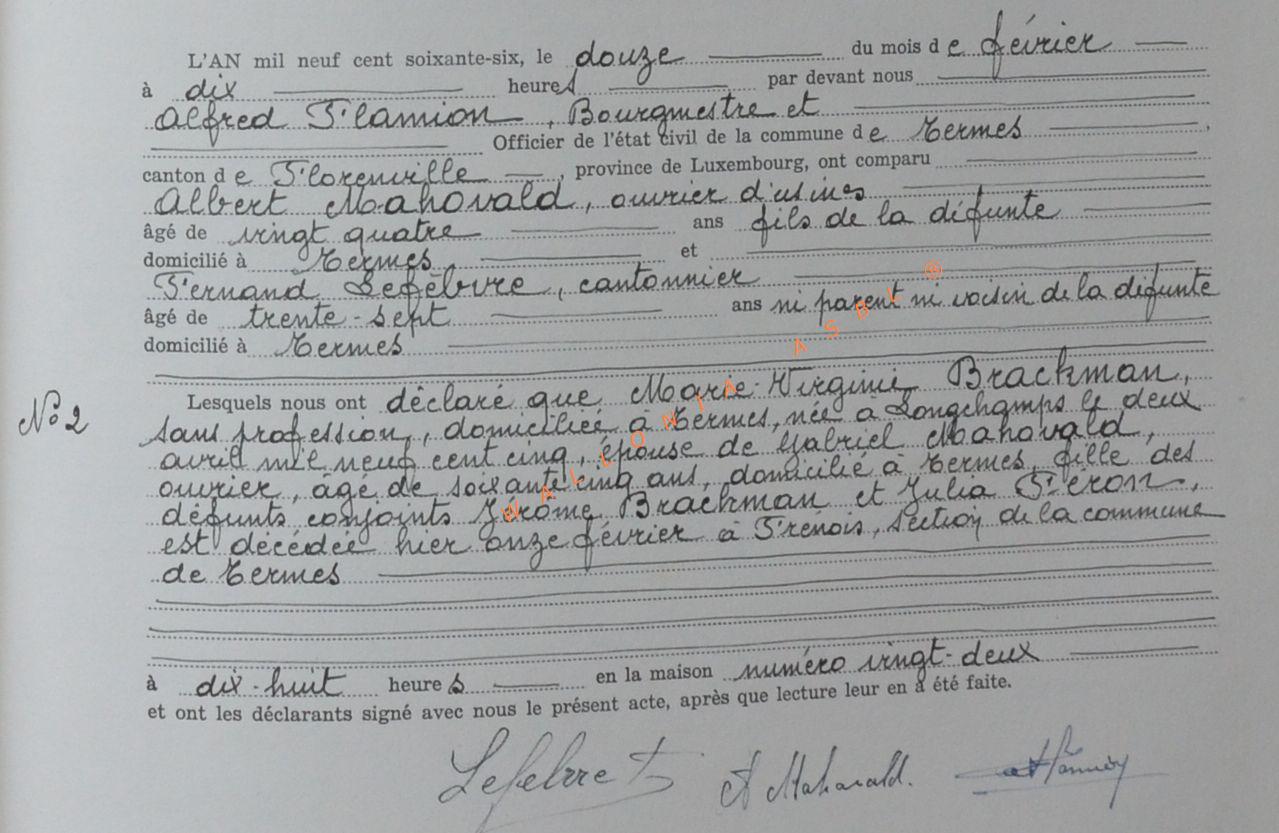 L'AN mil neuf cent soixante-six, le douze du mois de février
à dix heures par devant nous
Alfred Flamion, Bourgmestre et
Officier de l'état civil de la commune de Termes,
canton de Florenville, province de Luxembourg, ont comparu
Albert Mahovald, ouvrier d'usines
âgé de vingt quatre ans fils de la défunte
domicilié à Termes et
Fernand Lefèbvre, cantonnier
âgé de trente-sept ans ni parent ni voisin de la défunte
domicilié à Termes
Lesquels nous ont déclaré que Marie-Virginie Brackman,
N° 2
sans profession, domiciliée à Termes, née à Longchamps le deux
avril mil neuf cent cinq, épouse de Gabriel Mahovald,
ouvrier, âgé de soixante cinq ans, domicilié à Termes, fille des
défunts conjoints Jérôme Brackman et Julia Feron,
est décédée hier onze février à Frenois, section de la commune
de Termes
à dix-huit heures en la maison numéro vingt-deux
et ont les déclarants signé avec nous le présent acte, après que lecture leur en a été faite.
Lefebvre A Mahovald.
WALLONIA ASBL ®